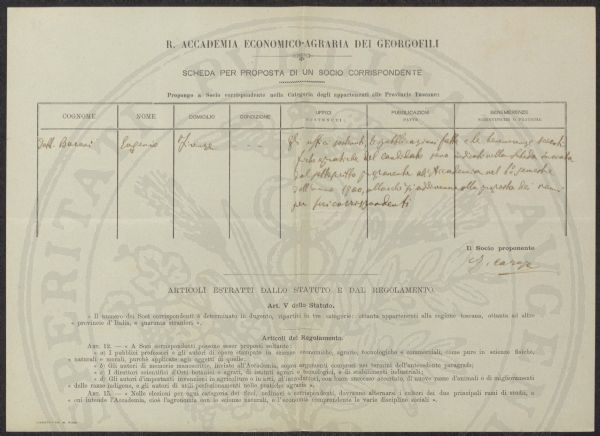 R. ACCADEMIA ECONOMICO-AGRARIA DEI GEORGOFILI
SCHEDA PER PROPOSTA DI UN SOCIO CORRISPONDENTE
Propongo a Socio corrispondente nella Categoria degli appartenenti alle Provincie Toscane:
COGNOME NOME DOMICILIO CONDIZIONE UFFICI SOSTENUTI PUBBLICAZIONI FATTE BENEMERENZE SCIENTIFICHE O PRATICHE
Dott. Baroni Eugenio Firenze Gli uffici sostenuti, le pubblicazioni fatte e le benemerenze
del candidato sono indicati nella scheda inviata
dal sottoscritto all'Accademia nel
dell'anno 1900, alla proposta dei
per corrispondenti
Il Socio proponente
ARTICOLI ESTRATTI DALLO STATUTO E DAL REGOLAMENTO.
Art. V dello Statuto.
« Il numero dei Soci corrispondenti è determinato in dugento, ripartiti in tre categorie: ottanta appartenenti alla regione toscana, ottanto ad altre
provincie d'Italia, e quaranta stranieri ».
Articoli del Regolamento.
ART. 12. — « A Soci corrispondenti possono esser proposti soltanto:
« a) I pubblici professori e gli autori di opere stampate in scienze economiche, agrarie, tecnologiche e commerciali, come pure in scienze fisiche,
naturali e morali, purchè applicate agli oggetti di quelle;
« b) Gli autori di memorie manoscritte, inviate all'Accademia, sopra argomenti compresi nei termini dell'antecedente paragrafo;
« c) I direttori scientifici d'Orti botanici e agrari, di istituti agrari e tecnologici, e di stabilimenti industriali;
« d) Gli autori d'importanti invenzioni in agricoltura o in arti, gl'introduttori, con buon successo accertato, di nuove razze d'animali o di miglioramenti
delle razze indigene, e gli autori di utili perfezionamenti nelle pratiche agrarie ».
ART. 15. — « Nelle elezioni per ogni categoria dei Soci, ordinari e corrispondenti, dovranno alternarsi i cultori dei due principali rami di studi, a
cui intende l'Accademia, cioè l'agronomia con le scienze naturali, e l'economia comprendente le varie discipline sociali ».